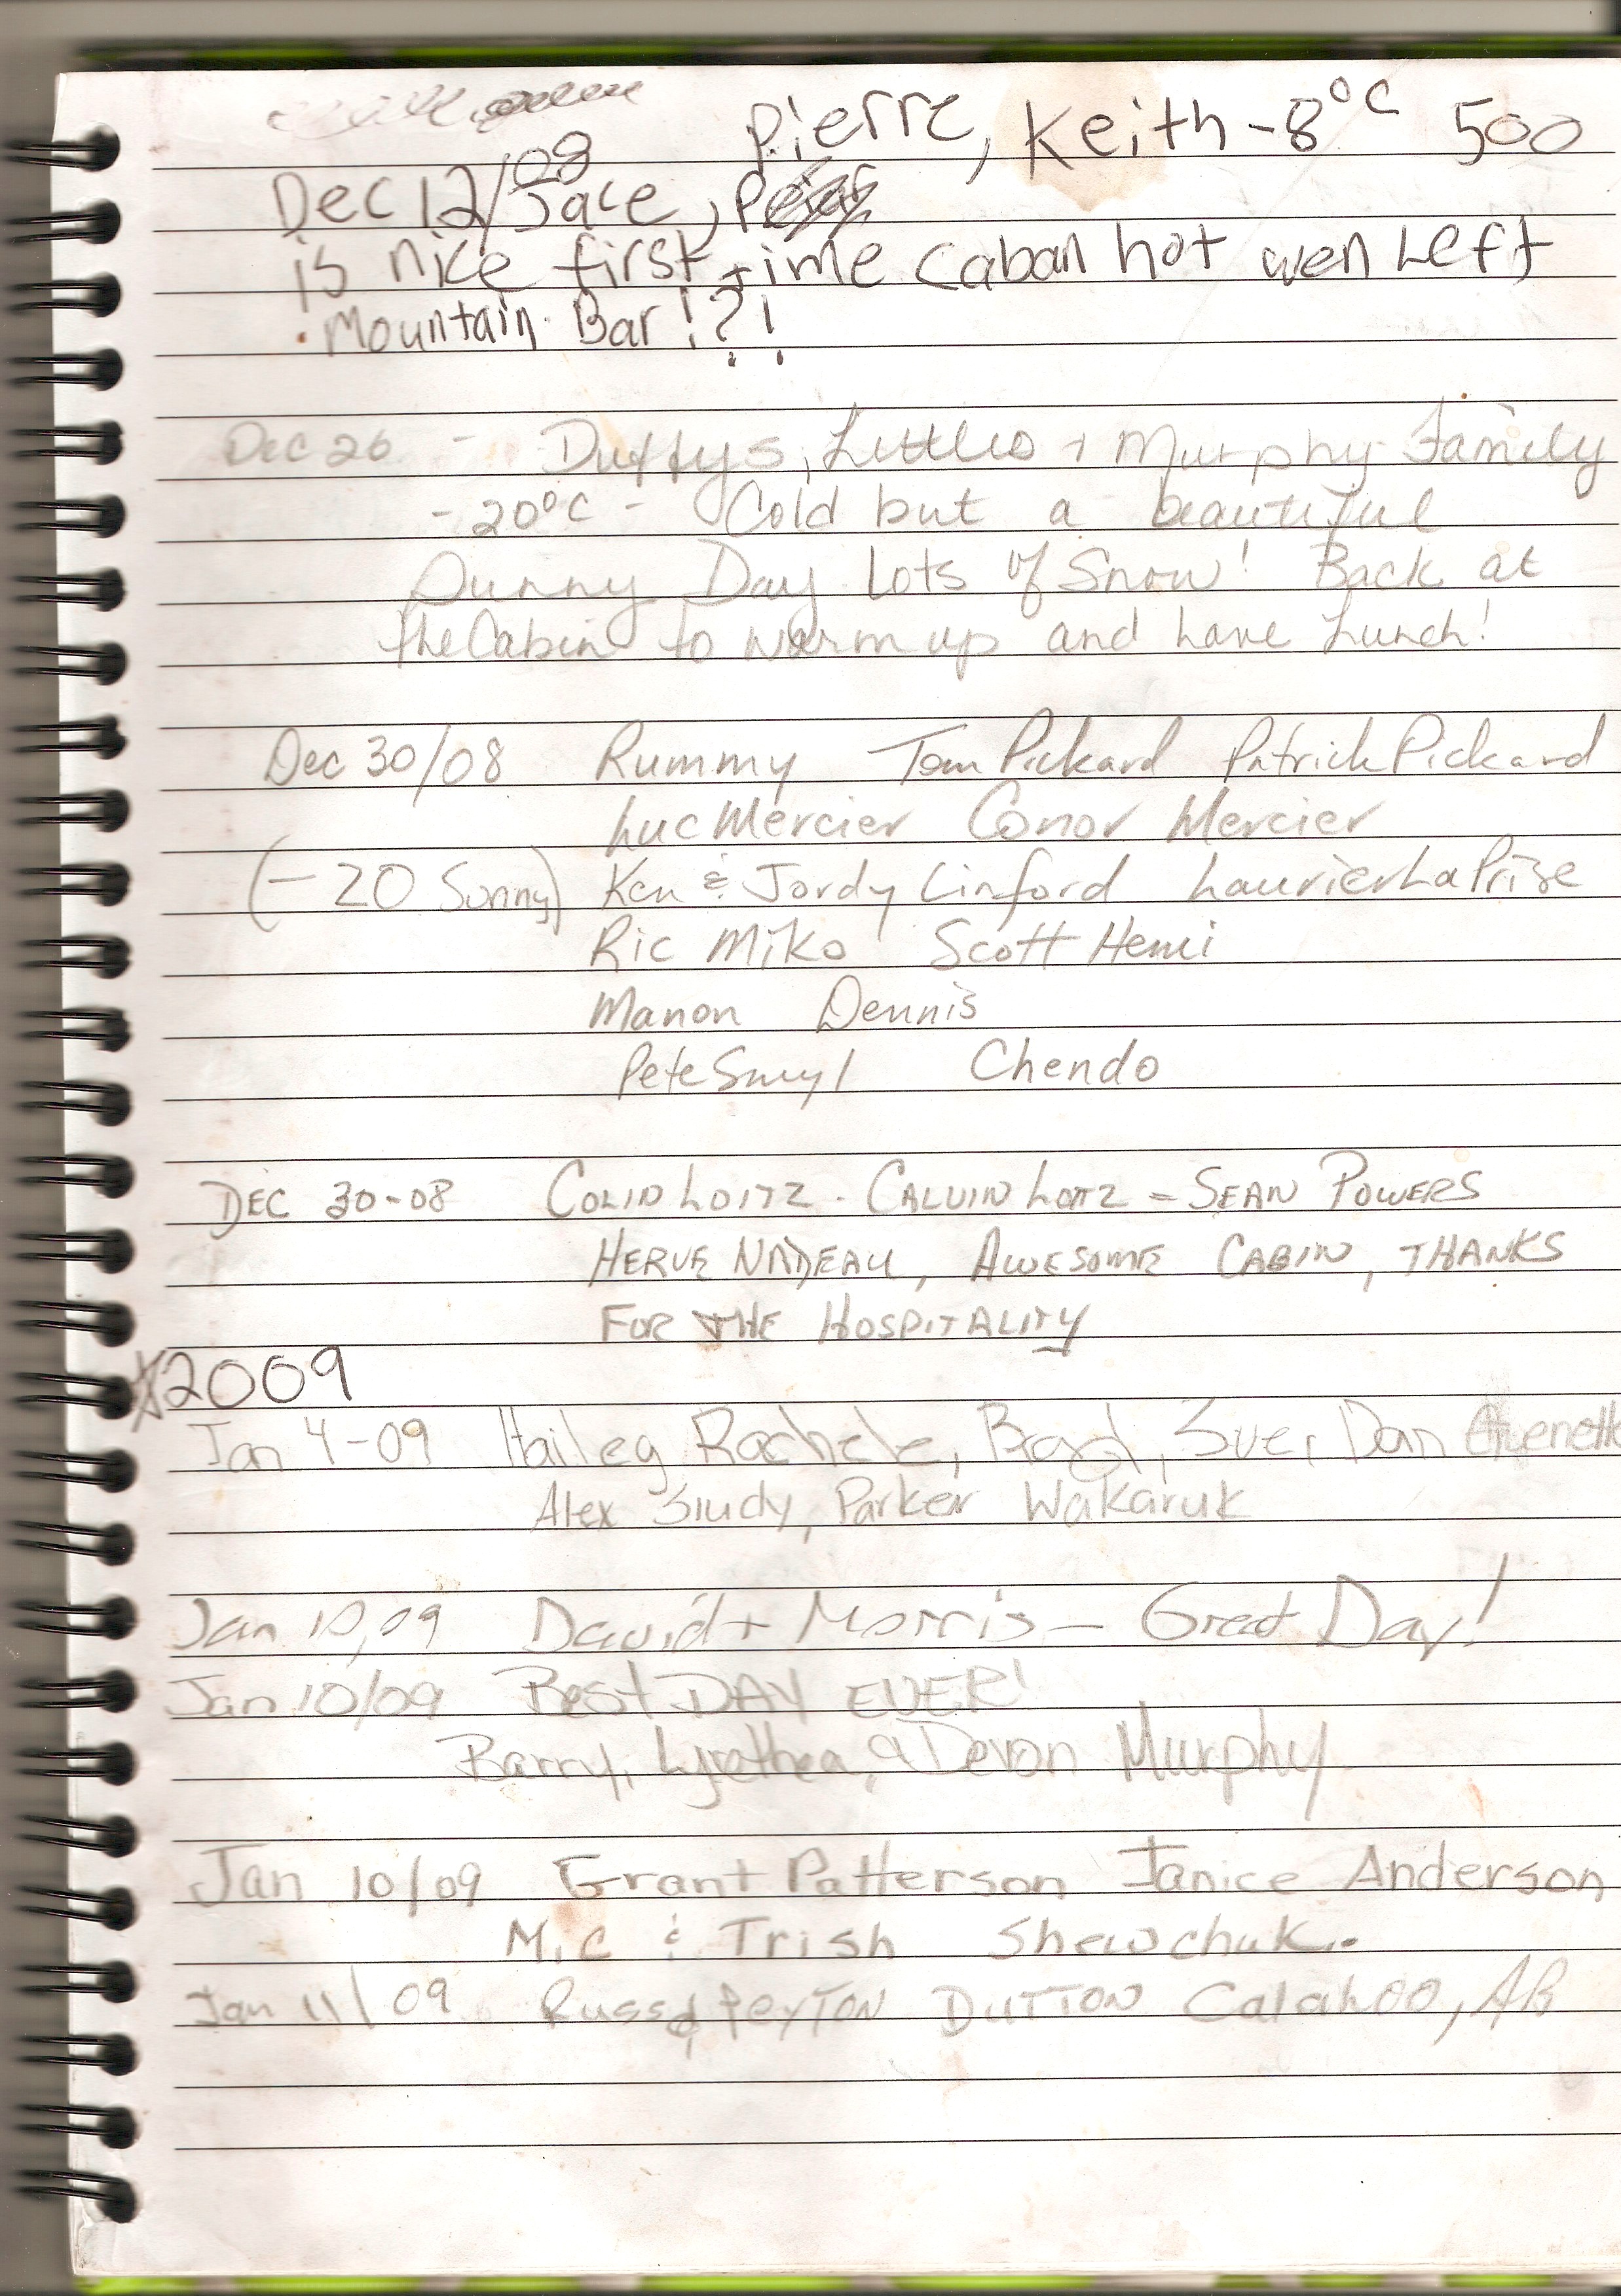 Pierre, Keith -8°C 500
Dec 12/08 Jace,
is nice first time caban hot wen Left
Mountain Bar!?!
Dec 26 - Duffys, Littles + Murphy Family
-20°C - Cold but a beautiful
Sunny Day Lots of Snow! Back at
the Cabin to warm up and have Lunch!
Dec 30/08 Rummy Tom Pickard Patrick Pickard
Luc Mercier Conor Mercier
(-20 Sunny) Ken & Jordy Linford Laurier LaPrise
Ric Miko Scott Hemi
Manon Dennis
Pete Smyl Chendo
DEC 30-08 COLIN LOITZ - CALVIN LOITZ - SEAN POWERS
HERVE NADEAU, AWESOME CABIN, THANKS
FOR THE HOSPITALITY
2009
Jan 4-09 Haileg Rachele, Brad, Sue, Dan
Alex Study, Parker Wakaruk
Jan 10,09 David + Morris - Great Day!
Jan 10/09 Best DAY EVER!
Barry, & Devon Murphy
Jan 10/09 Grant Patterson Janice Anderson
Mic & Trish Shewchuk.
Jan 11/09 Russ & PEYTON DUTTON Calahoo, AB